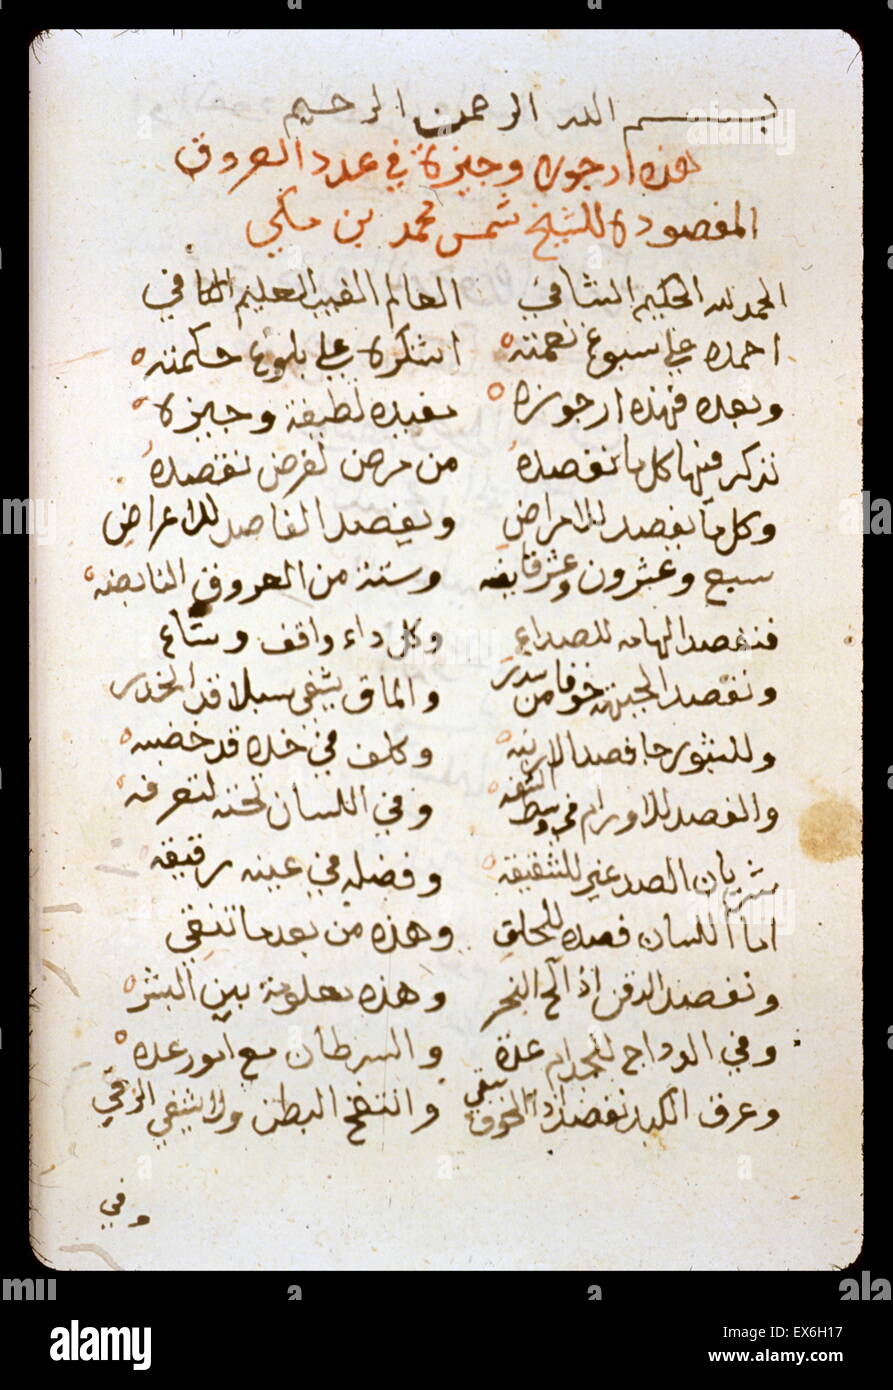 بسم الله الرحمن الرحيم
هذه ارجوزه وجيزة في عدد العروق
المفصودة للشيخ شمس محمد بن مكي
الحمد لله الحكيم الشافي العالم الغيب العليم الكافي
احمده على سبوغ نعمته اشكره على بلوغ حكمته
وبعده فهذه ارجوزه مفيده لطيفة وجيزة
نذكر فيها كل ما نفصده من مرض لغرض نقصده
وكل ما يفصد للامراض ويفصد الفاصد للاعراض
سبع وعشرون وعشر قابضه وستة من العروق النابضه
فنفصد الهامه للصداع وكل داء واقف وساع
ونفصد الجبهة خوفا من سدر والماق يشفي سبلا قد انحدر
وللبثور حا فصد الارنبه وكلف في خده قد خضبه
والفصد للاورام في وسط الشفه وفي اللسان تحته لتعرفه
شريان الصدغين للشقيقه وفضله في عينه رقيقه
اما اللسان فصده للحلق وهذه من بعد ما تنقي
ونفصد الدقن اذا لج البخر وهذه معلومة بين البشر
وفي الوداج للجذام عدة والسرطان مع امور عده
وعرق الكبد نفصد اذا الخوف بقي والنفخ البطن ولا يشفي الزقي
وفي
alamy
EX6H17
www.alamy.com